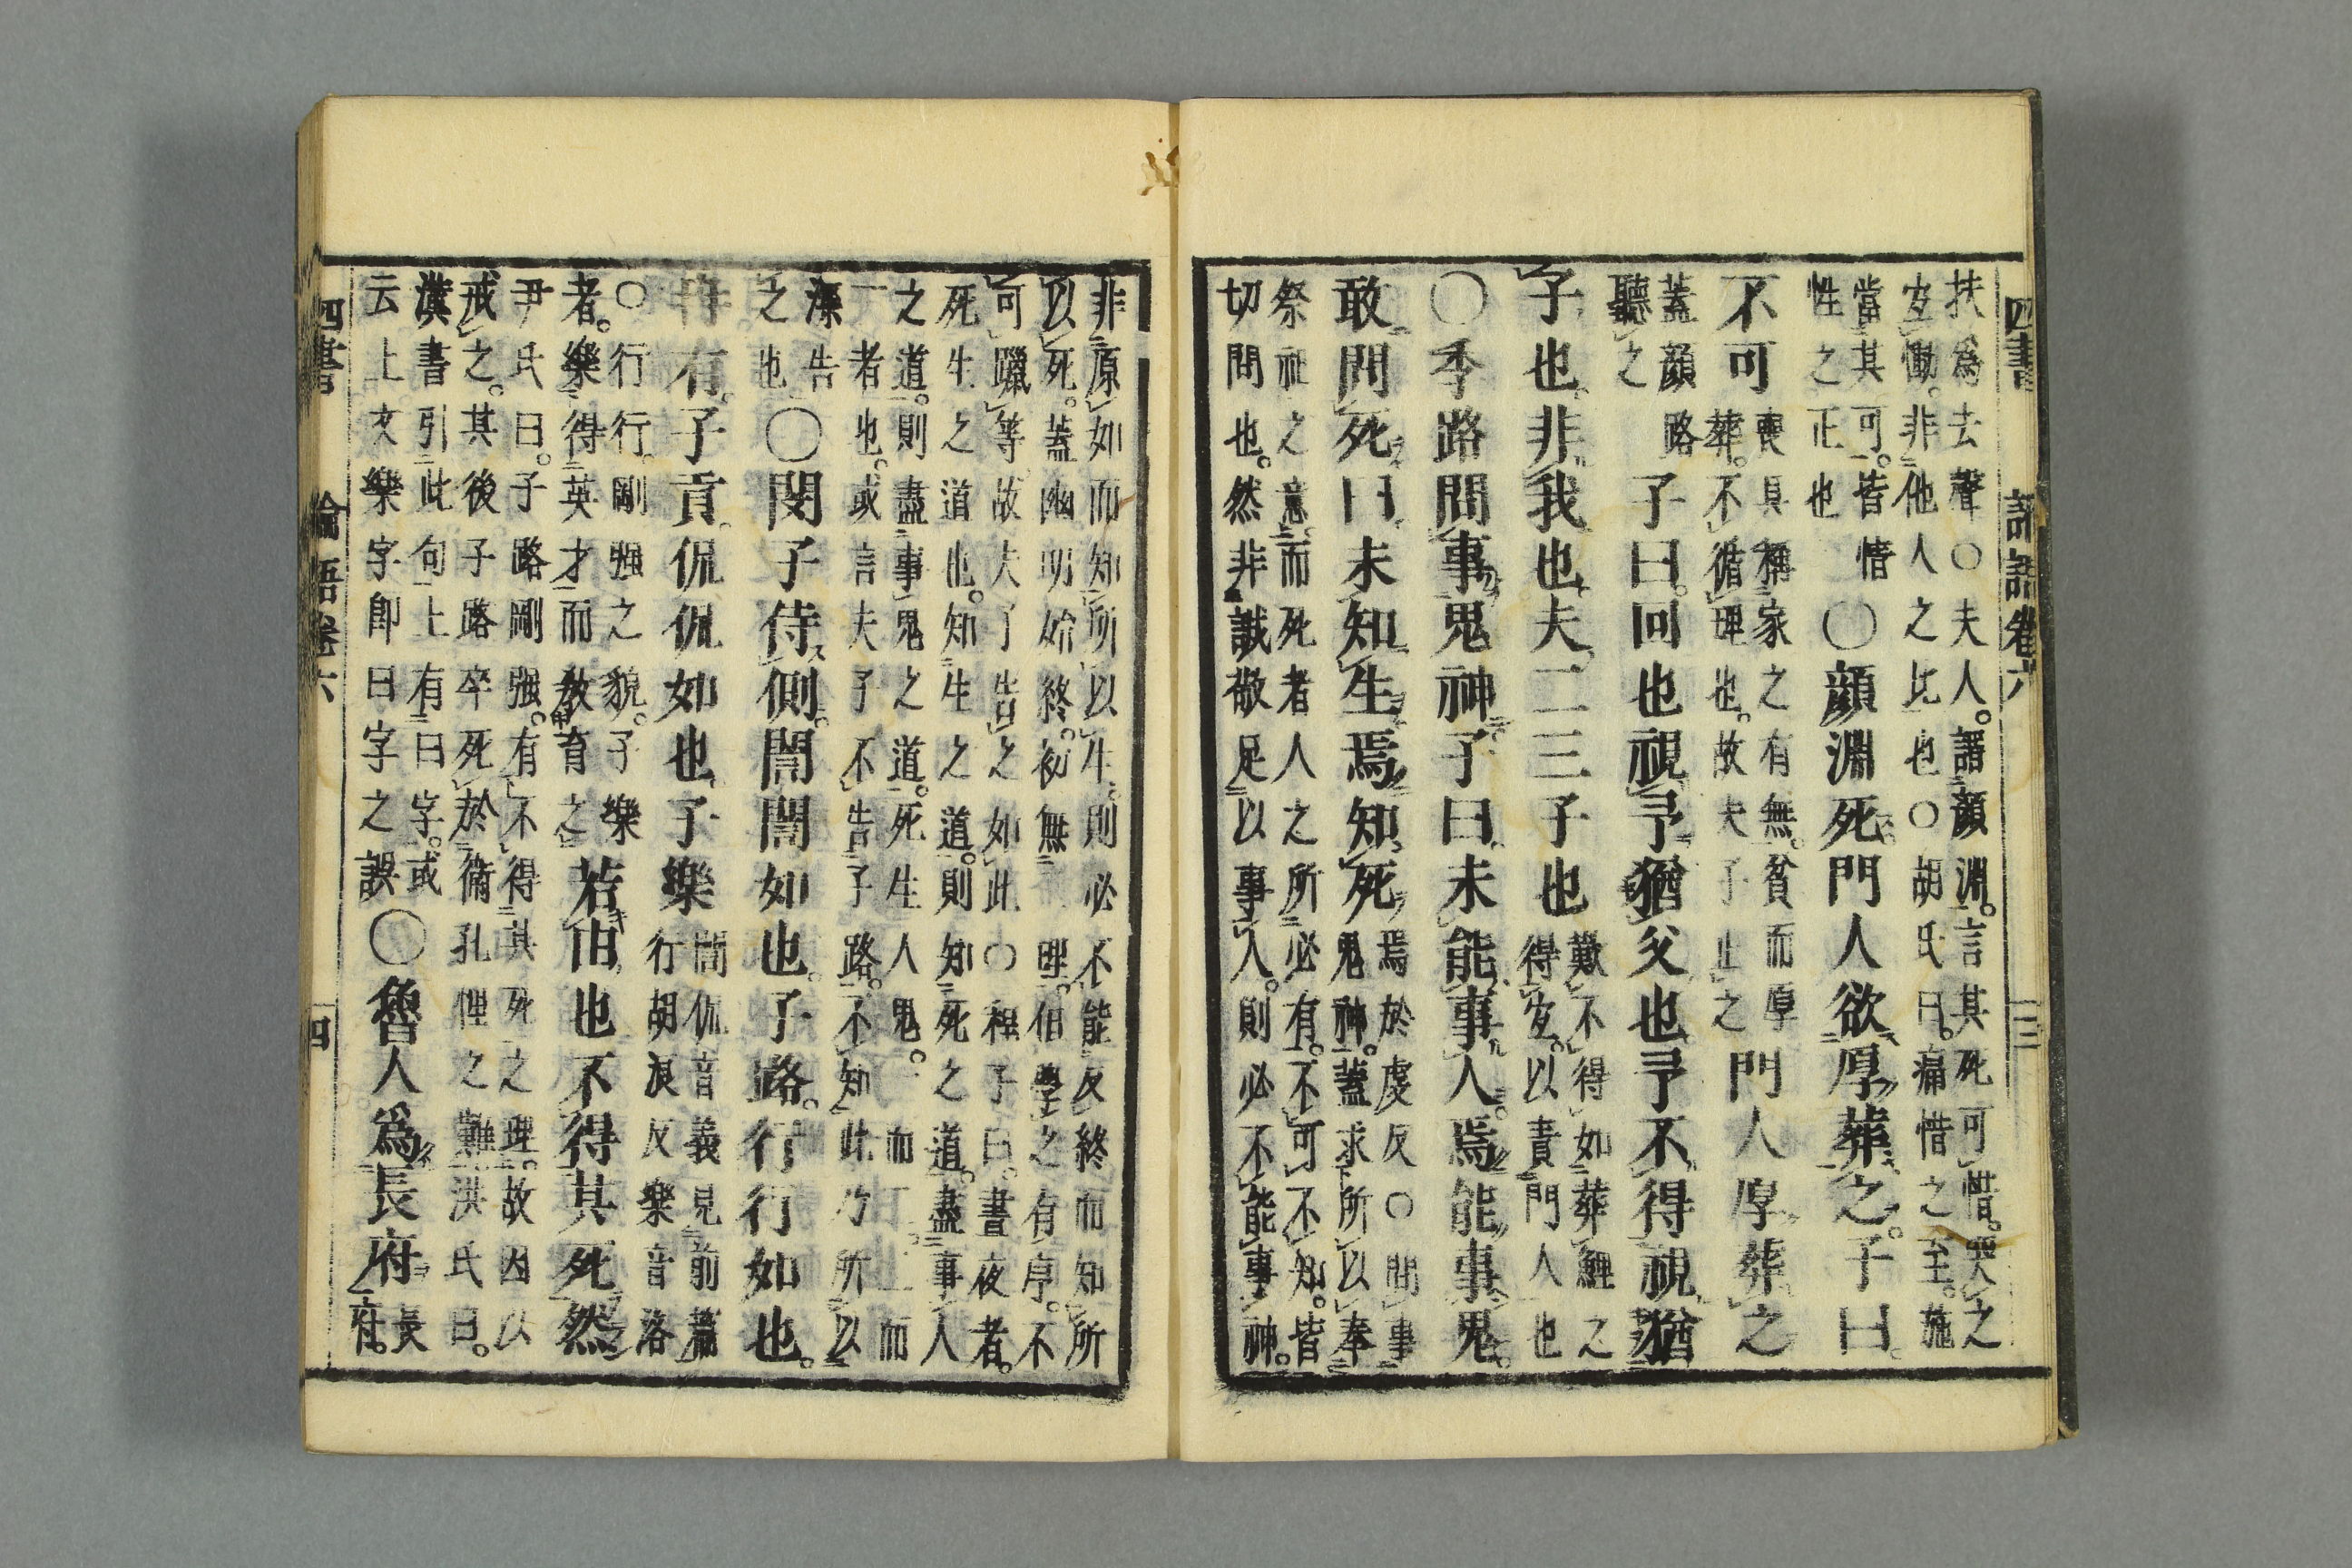 四書 論語卷六 三
扶爲去聲○夫人。謂顏淵。言其死可惜。哭之
宜慟。非他人之比也○胡氏曰。痛惜之至。施
當其可。皆情
性之正也
○顏淵死門人欲厚葬之。子曰。
不可
喪具稱家之有無。貧而厚
葬。不循理也。故夫子止之
門人厚葬之
蓋顏路
聽之
子曰。回也視予猶父也予不得視猶
子也。非我也夫二三子也
歎不得如葬鯉之
得宜。以責門人也
○季路問事鬼神子曰未能事人。焉能事鬼。
敢問死曰未知生焉知死
焉於虔反○問事
鬼神。蓋求所以奉
祭祀之意。而死者人之所必有。不可不知。皆
切問也。然非誠敬足以事人。則必不能事神。
非原始而知所以生。則必不能反終而知所
以死。蓋幽明始終。初無二理。但學之有序。不
可躐等。故夫子告之如此○程子曰。晝夜者。
死生之道也。知生之道。則知死之道。盡事人
之道。則盡事鬼之道。死生人鬼。一而二二而
一者也。或言夫子不告子路。不知此乃所以
深告
之也
○閔子侍側。誾誾如也。子路。行行如也。
冉有。子貢。侃侃如也子樂
誾侃音義見前篇
行胡浪反樂音洛
○行行。剛强之貌。子樂
者。樂得英才而敎育之
若由也不得其死然
尹氏曰。子路剛强。有不得其死之理。故因以
戒之。其後子路卒死於衞孔悝之難洪氏曰。
漢書引此句上有曰字。或
云上文樂字卽曰字之誤
○魯人爲長府
長
府。
四書 論語卷六 四